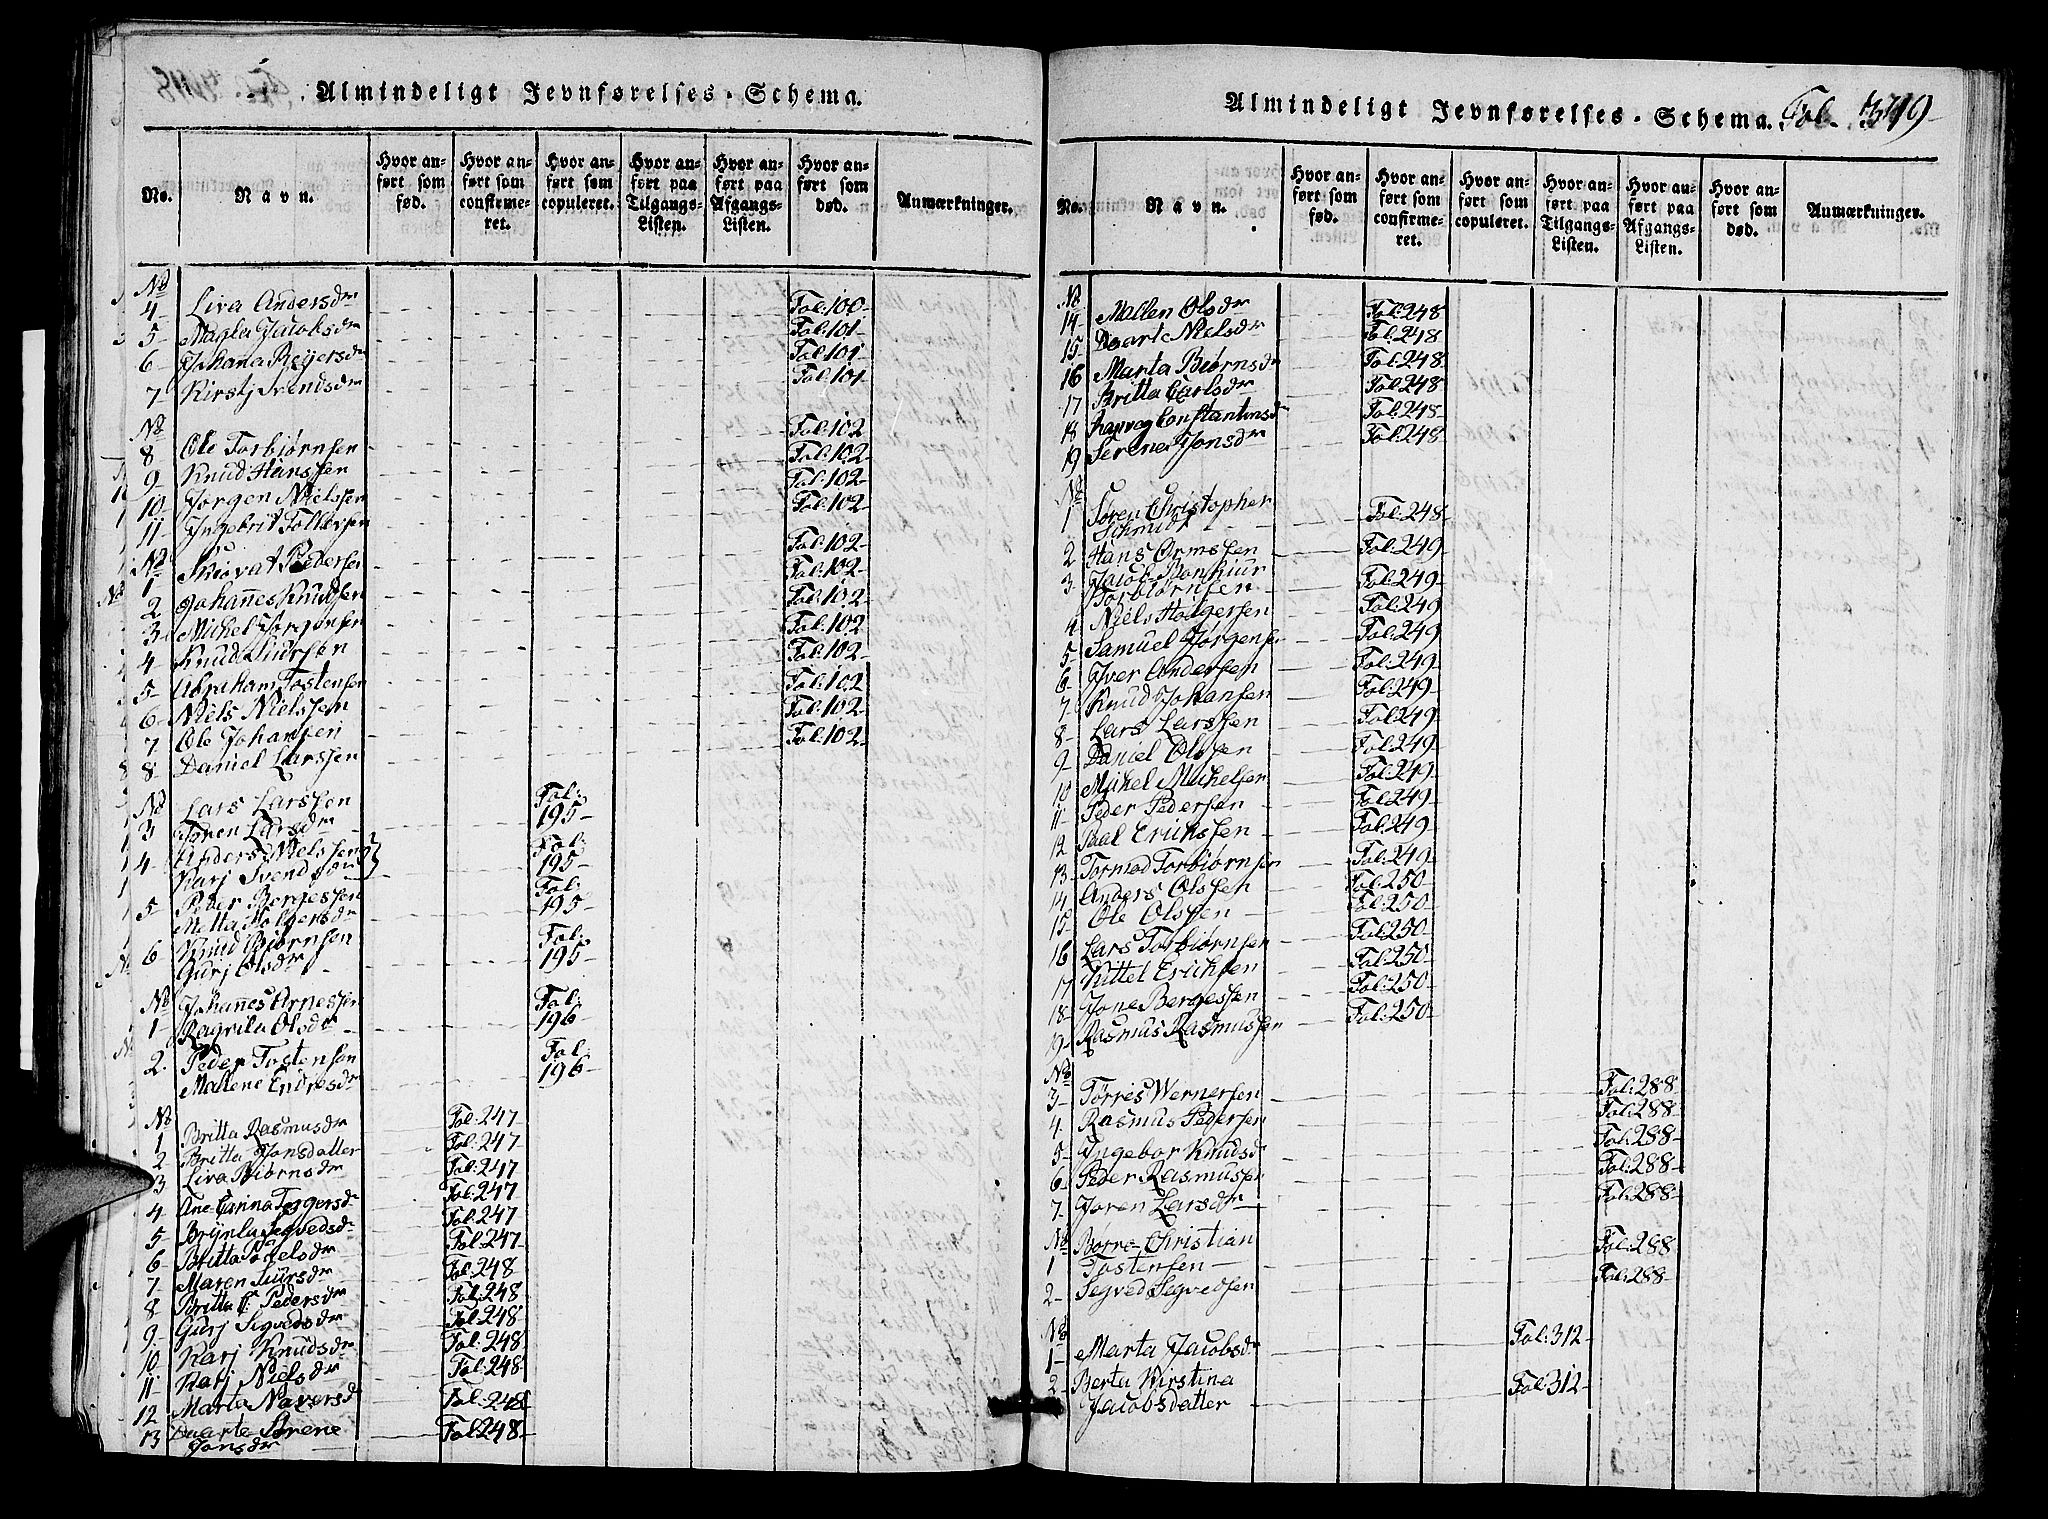 Almindeligt Jevnførelses-Schema.
No.
Navn.
Hvor anført som fød.
Hvor anført som confirmeret.
Hvor anført som copuleret.
Hvor anført paa Tilgangs-Listen.
Hvor anført paa Afgangs-Listen.
Hvor anført som død.
Anmærkninger.
No
4 Liva Andersdr Fol: 100
5 Magla Jacobsdr Fol: 101
6 Johana Reijersdr Fol: 101
7 Kirstj Svendsdr Fol: 101
No
8 Ole Torbjørnsen Fol: 102
9 Knud Hanssen Fol: 102
10 Jørgen Nielssen Fol: 102
11 Ingebrit Tollefsen Fol: 102
No
1 Pedersen Fol: 102
2 Johannes Knudsen Fol: 102
3 Michel Jørgensen Fol: 102
4 Knud Siursen Fol: 102
5 Abraham Tostensen Fol: 102
6 Niels Nielssen Fol: 102
7 Ole Johansen Fol: 102
8 Daniel Larssen Fol: 102
No Lars Larssen Fol:
3 Joren Larsdr 195
4 Anders Nielssen Fol:
Karj Svendsdr 195
5 Peder Bergessen Fol:
Metta Holgersdr 195
6 Knud Biørnsen Fol:
Gurj Olsdr 195
No Johannes Arnessen Fol:
1 Ragnila Olsdr 196
2 Peder Tostensen Fol:
Mallene Endresdr 196
No
1 Britta Rasmusdr Fol: 247
2 Britta Jonsdatter Fol: 247
3 Liva Biørnsdr Fol: 247
4 Ane Carina Torgersdr Fol: 247
5 Brynla Segvedsdr Fol: 247
6 Britta Poelsdr Fol: 247
7 Maren Siursdr Fol: 248
8 Britta C: Pedersdr Fol: 248
9 Gurj Sigvedsdr Fol: 248
10 Karj Knudsdr Fol: 248
11 Karj Nielsdr Fol: 248
12 Marta Naversdr Fol: 248
13 Daarte Serene Fol: 248
Jonsdr
Almindeligt Jevnførelses-Schema. Fol. 379
No.
Navn.
Hvor anført som fød.
Hvor anført som confirmeret.
Hvor anført som copuleret.
Hvor anført paa Tilgangs-Listen.
Hvor anført paa Afgangs-Listen.
Hvor anført som død.
Anmærkninger.
No
14 Mallen Olsdr Fol: 248
15 Daarte Nielsdr Fol: 248
16 Marta Biørnsdr Fol: 248
17 Britta Carlsdr Fol: 248
18 Constantinsdr Fol: 248
19 Serene Jonsdr Fol: 248
No
1 Søren Christopher Fol: 248
Schmidt
2 Hans Ormssen Fol: 249
3 Jacob Fol: 249
Torbiørnsen
4 Niels Holgersen Fol: 249
5 Samuel Jørgensen Fol: 249
6 Iver Andersen Fol: 249
7 Knud Johansen Fol: 249
8 Lars Larssen Fol: 249
9 Daniel Olssen Fol: 249
10 Mikel Michelsen Fol: 249
11 Peder Pedersen Fol: 249
12 Paal Erikssen Fol: 249
13 Tormod Torbiørnsen Fol: 249
14 Anders Olssen Fol: 250
15 Ole Olssen Fol: 250
16 Lars Torbiørnsen Fol: 250
17 Kittel Ericksen Fol: 250
18 Jone Bergessen Fol: 250
19 Rasmus Rasmussen Fol: 250
No
3 Tørres Wernersen Fol: 288
4 Rasmus Pedersen Fol: 288
5 Ingebor Knudsd Fol: 288
6 Peder Rasmussen Fol: 288
7 Joren Larsdr Fol: 288
No
1 Børre Christian Fol: 288
Tostensen
2 Segved Segvedsen Fol: 288
No
1 Marta Jacobsdr Fol: 312
2 Berta Kirstina Fol: 312
Jacobsdatter